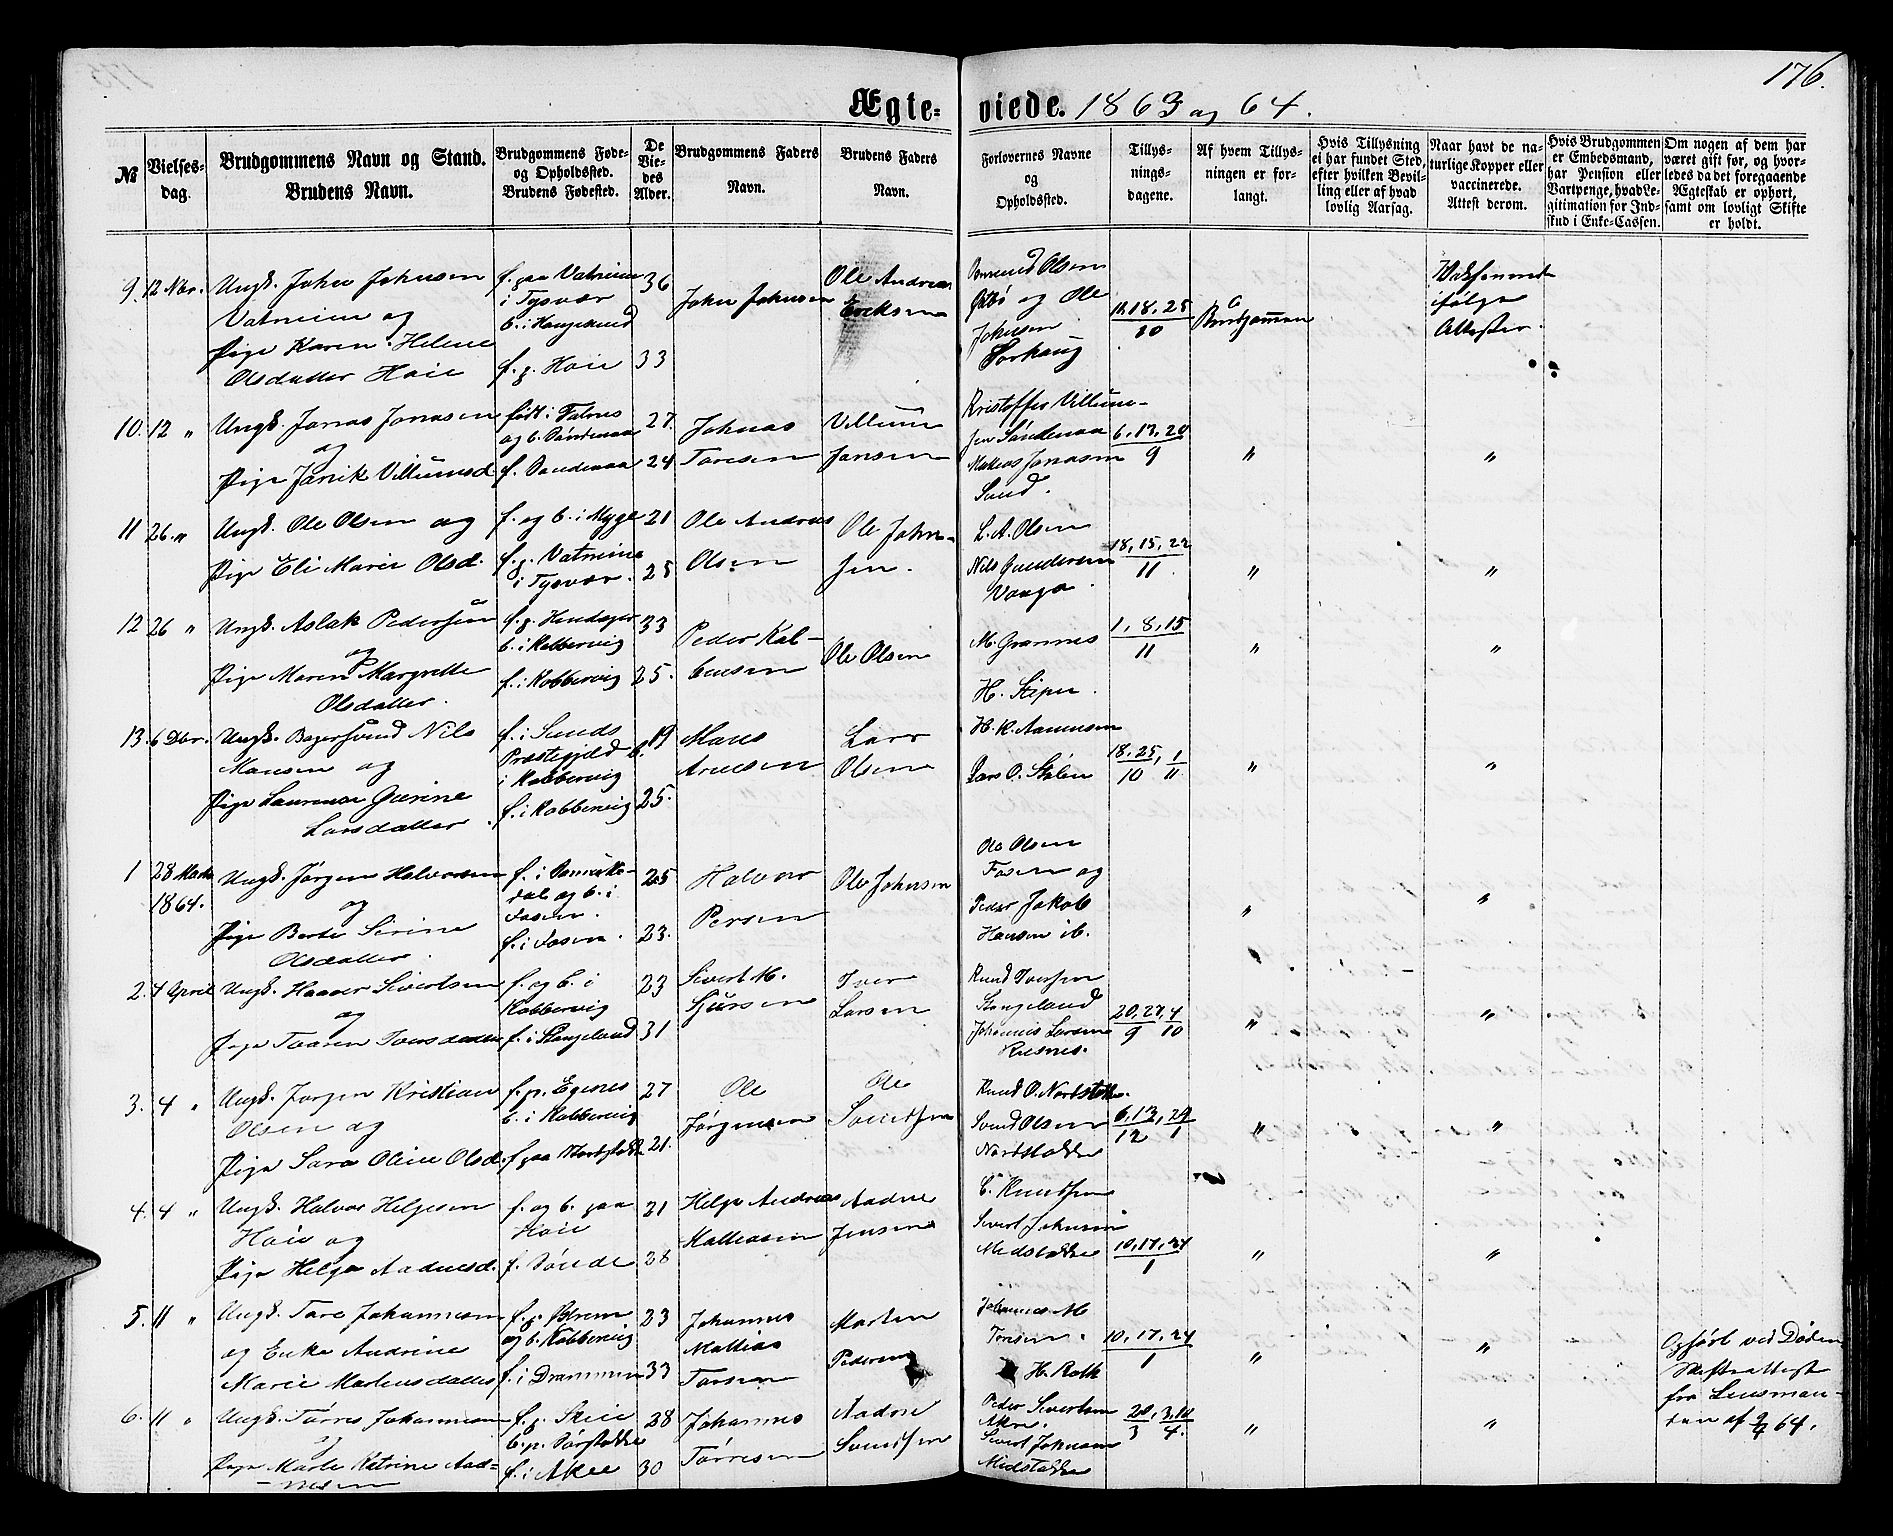 176.
Ægteviede. 1863 og 64.
№
Vielsesdag.
Brudgommens Navn og Stand.
Brudens Navn.
Brudgommens Føde- og Opholdsted.
Brudens Fødested.
De Viedes Alder.
Brudgommens Faders Navn.
Brudens Faders Navn.
Forlovernes Navne og Opholdssted.
Tillysningsdagene.
Af hvem Tillysningen er forlangt.
Hvis Tillysning ei har fundet Sted, efter hvilken Bevilling eller af hvad lovlig Aarsag.
Naar havt de naturlige Kopper eller vaccinerede. Attest derom.
Hvis Brudgommen er Embedsmand, har Pension eller Vartpenge, hvad Legitimation for Indskud i Enke-Cassen.
Om nogen af dem har været gift før, og hvorledes da det foregaaende Ægteskab er ophørt, samt om lovligt Skifte er holdt.
9. 12 Nbr. Ungk. John Johnsen Vatneien og Pige Karen Helene Olsdatter Hoie
f. paa Vatneien i Tysvær b. i Haugesund f. p. Hoie
36 33
John Johnsen
Ole Andreas Eriksen
Olsen og Ole Johnsen Sørhaug
11,18,25/10
Brudgommen
Vaksineret ifølge Attester.
10. 12 " Ungk. Jonas Jonasen og Pige Janik Villumsd.
født i Falnes og b. Søndenaa f. Søndenaa
27 24
Johnas Toresen
Villum Jansen
Kristoffer Villumsen Søndenaa Matias Jonasen Sund.
6,13,20/9 " "
11 26 " Ungk. Ole Olsen og Pige Eli Marie Olsd.
f. og b. i Myge f. p. Vatneiene i Tysvær.
21 25
Ole Andreas Olsen
Ole Johnsen.
L. A. Olsen Nils Gundersen Vaaga.
18,15,22/11 " "
12 26 " Ungk. Aslak Pedersen og Pige Maren Margrette Olsdatter.
b. i Kobbervig f. i Kobbervig
33 25.
Peder
Ole Olsen
M. Grannes H.
1,8,15/11 " "
13. 6 Dbr. Ungk. Nils Mansen og Pige Laurense Gurine Larsdatter.
f. i Sunds Præstegjeld b. i Kobbervig f. i Kobbervig
19 25.
Mans Arnesen
Lars Olsen
H. K. Aanensen Lars O. Stølen
18,25/10, 1/11 " "
1 28 Marts 1864. Ungk. Jørgen Halvorsen og Pige Berte Serine Olsdatter.
og b. i Fosen. f. i Fosen.
25 23.
Halvor Persen
Ole Johnsen
Ole Olsen Fosen og Peder Jakob Hansen ib.
" "
2. 4 April Ungk. Haaver Sivertsen og Pige Taaren Iversdatter
f. og b. i Kobbervig f. i Stangeland
23 31
Sivert M. Sjursen
Iver Larsen
Knud Iversen Stangeland Johannes Larsen
20,27/9 4/10 " "
3. 4 " Ungk. Jørgen Kristian Olsen og Pige Sara Oline Olsd.
f. p. Egenes b. i Kobbervig f. paa Nordstokke
27 21.
Ole Jørgensen
Ole Svendsen
Knud O. Nordstokke. Svend Olsen Nordstokke
6,13/12, 24/1 " "
4. 4 " Ungk. Halvor Helgesen Hoie og Pige Helga Aadnesd.
f. og b. paa Hoie f. Sønde
21 28
Helge Andreas Matteasen
Aadne Jensen
E. Knudsen Sivert Johnsen Midstokke
10,17,24/1 " "
5. 11 " Ungk. Tore Johannesen og Enke Andrine Marie Martensdatter
og b. Kobbervig f. i Drammen
23 33
Johannes Mattias Torsen
Marten Pedersen
Johannes M Torsen. H. Roth
10,17,24/1 " "
Opført ved Døden Skifteattest fra Lensmanden af 2/4 64.
6. 11 " Ungk. Tørres Johannesen og Pige Marte Katrine Aadnesen
f. p. Skeie b. p. Sørstokke f. i Akre
28 30
Johannes Tørresen
Aadne Svendsen
Peder Sivertsen Akre. Sivert Johnsen Midstokke
20/3, 3,10/4. " "